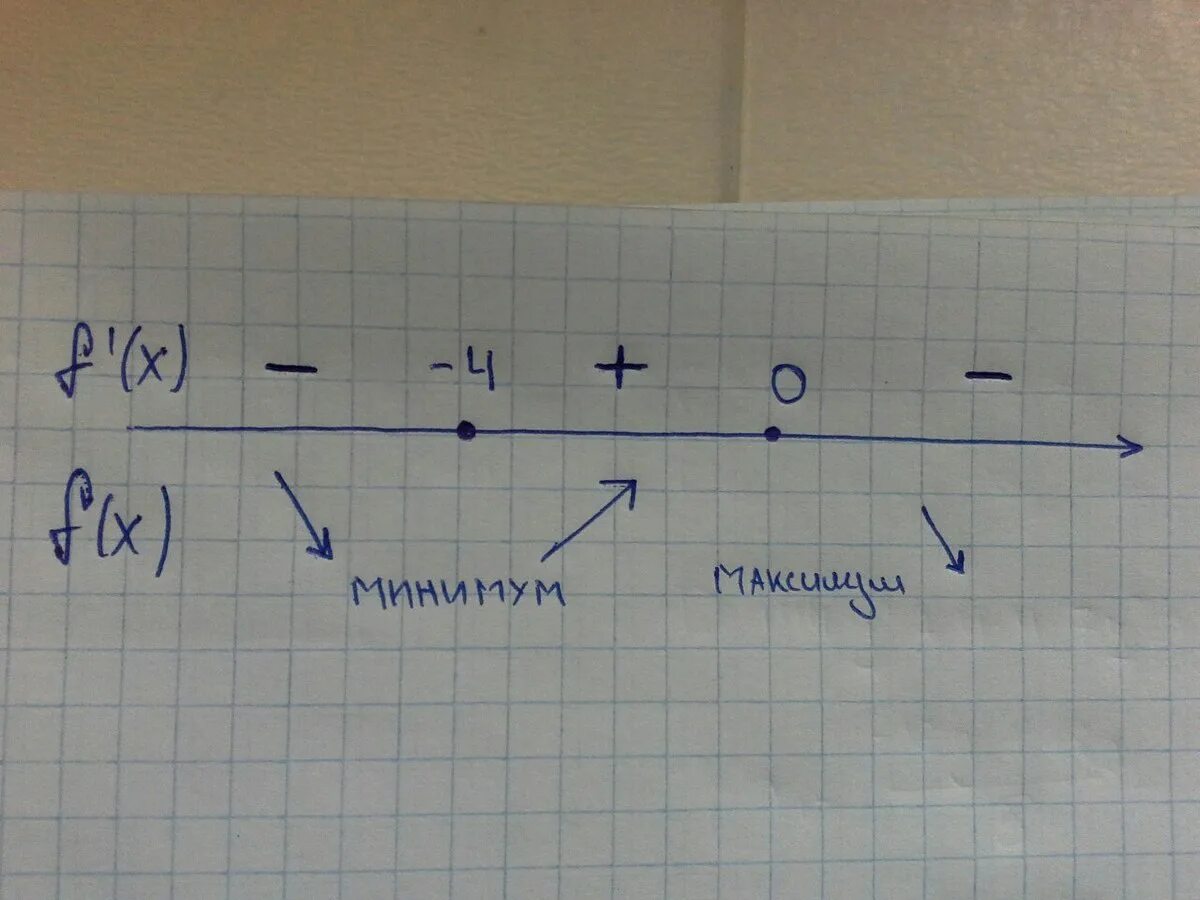 f'(x) − -4 + 0 −
f(x)
минимум максимум